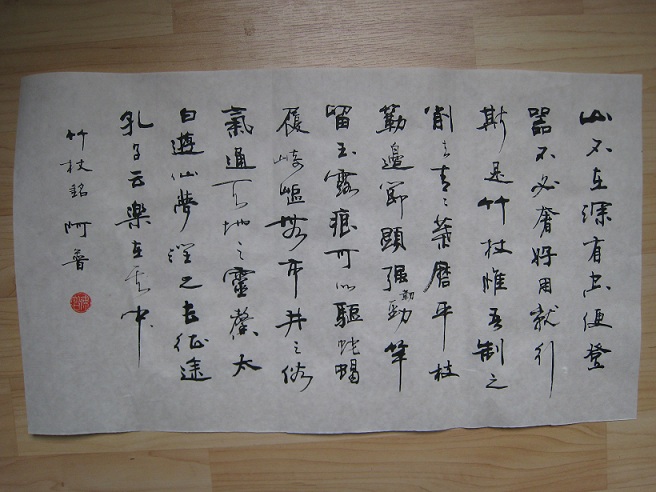 山不在深有便登
器不必奢好用就行
斯是竹杖惟吾制之
削去青々葉磨平枝
邊節顯強勁竿
留玉露痕可以驅蛇蝎
履崎嶇無市井之俗
氣通天地之靈太
白遊仙夢之征途
孔子云樂在其中
竹杖銘 阿